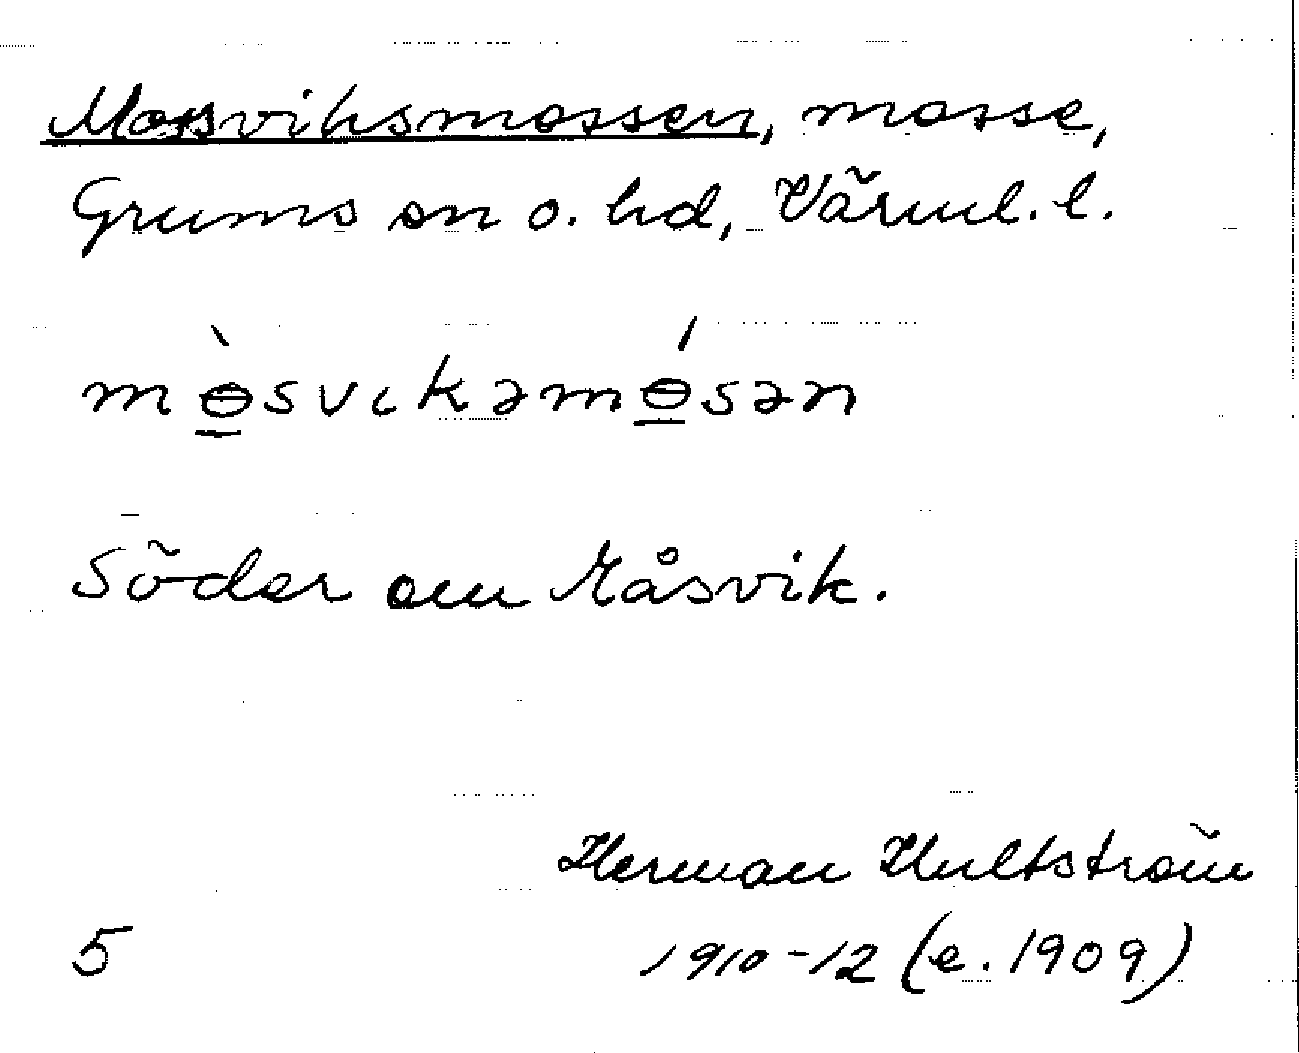 Mossviksmossen, mosse,
Grums sn o. hd, Värml. l.
mɵ̲̀svɩkəmɵ̲́sən
Söder om Måsvik.
Herman Hultström
5 1910-12 (e. 1909)